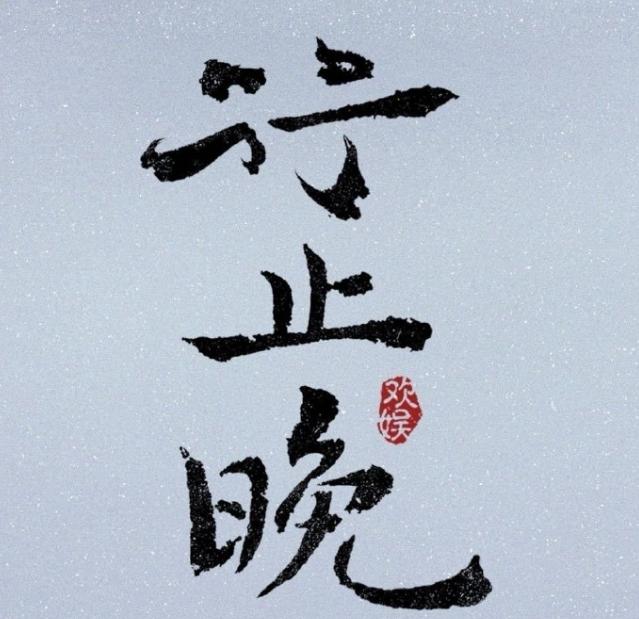 行止晚
欢娱